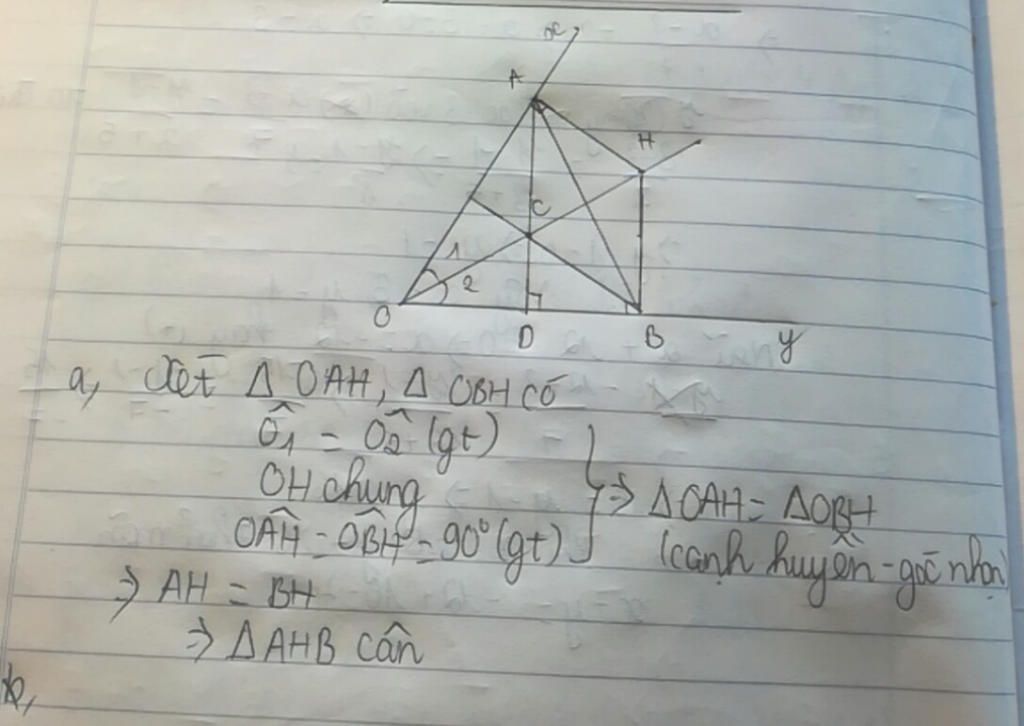 x
A
H
C
1
2
O
D
B
y
a, Xét Δ OAH, Δ OBH có
Ô1 = Ô2 (gt)
OH chung
OÂH = OB̂H = 90° (gt)
} => ΔOAH = ΔOBH
(cạnh huyền - góc nhọn)
=> AH = BH
=> Δ AHB cân
b,